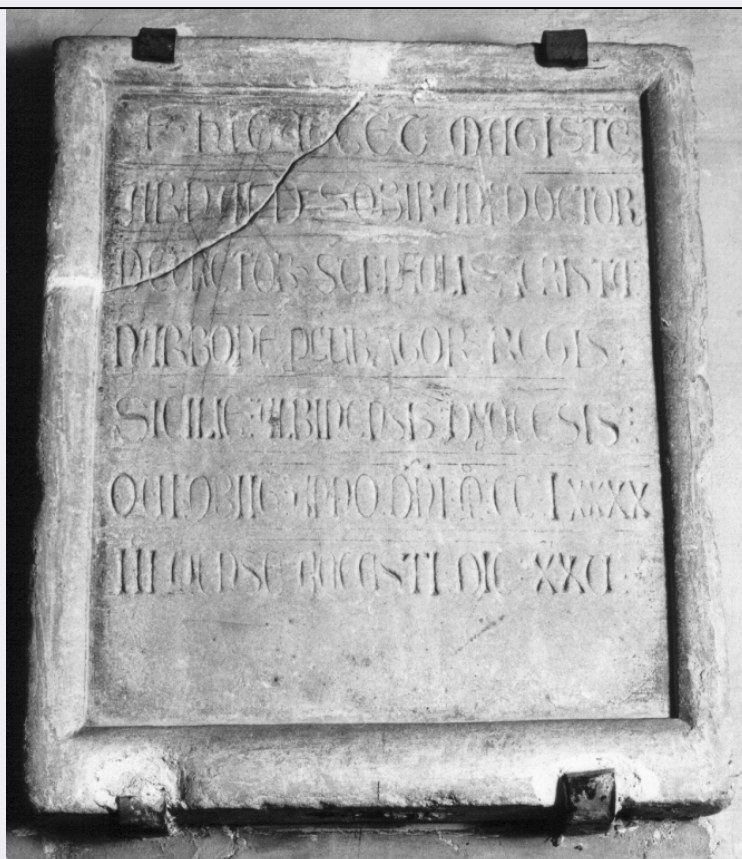 + HIC IACET MAGISTE
ARNALD SOBIRANI DOCTOR
DECRETOR SCI PAULI SACRISTA
NARBONE PCURATOR REGIS :
SICILIE ALBIENSIS DYOCESIS :
QUI OBIIT ANNO DNI M CC LXXXX
III MENSE AUGUSTI DIE XXV